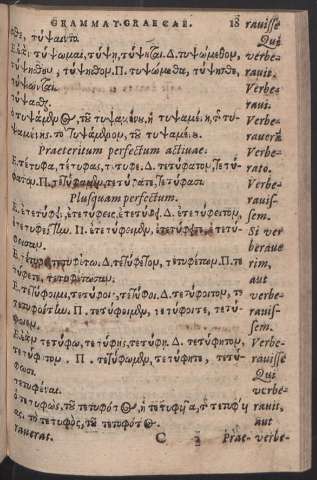 GRAMMAT. GRAECAE. 18
σθε, τύψαιντο.
Ε. ἐὰν τύψωμαι, τύψῃ, τύψηται. Δ. τυψώμεθον,
τύψησθον, τύψησθον. Π. τυψώμεθα, τύψησθε,
τύψωνται.
τύψασθαι
ὁ τυψάμενος, τοῦ τυψαμένου, ἡ τυψαμένη, τῆς τυ-
ψαμένης. τὸ τυψάμενον, τοῦ τυψαμένου.
Praeteritum perfectum actiuae.
Ε. τέτυφα, τέτυφας, τέτυφε. Δ. τετύφατον, τετύ-
φατον. Π. τετύφαμεν, τετύφατε, τετύφασι
Plusquam perfectum.
Ε. ἐτετύφειν, ἐτετύφεις, ἐτετύφει. Δ. ἐτετύφειτον,
ἐτετυφείτην. Π. ἐτετύφειμεν, ἐτετύφειτε, ἐτετύ-
φεισαν.
Ε. τέτυφε, τετυφέτω. Δ. τετύφετον, τετυφέτων. Π. τε
τύφετε, τετυφέτωσαν.
Ε. τετύφοιμι, τετύφοις, τετύφοι. Δ. τετύφοιτον, τε
τυφοίτην. Π. τετύφοιμεν, τετύφοιτε, τετύ-
φοιεν.
Ε. ἐὰν τετύφω, τετύφῃς, τετύφῃ. Δ. τετύφητον,
τετύφητον. Π. τετύφωμεν, τετύφητε, τετύ-
φωσι.
τετυφέναι.
ὁ τετυφὼς, τοῦ τετυφότος, ἡ τετυφυῖα, τῆς τετυφυί
ας. τὸ τετυφὸς, τοῦ τετυφότος.
rauerat. C 2 Prae-
rauisse
Qui
verbe-
rauit.
Verbe-
raui.
Verbe-
rauerā
Verbe-
rato.
Verbe-
rauis-
sem.
Si ver
beraue
rim,
aut
verbe-
rauis-
sem.
Verbe-
rauisse
Qui
verbe-
rauit,
aut
verbe-